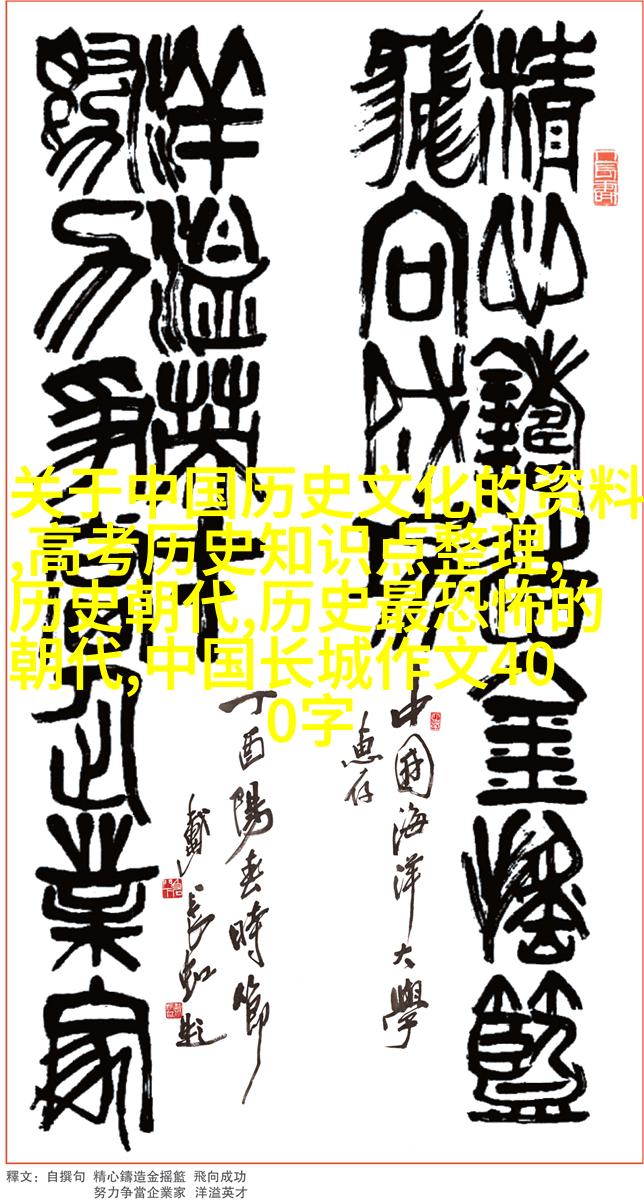 精心鑄造金摇籃
飛向成功
中國海洋大學
惠存
努力争當企業家
洋溢英才
丁酉陽春時節
戴長虹题
关于中国历史文化的资料
,高考历史知识点整理,
历史朝代,历史最恐怖的
朝代,中国长城作文40
0字
釋文：自撰句 精心鑄造金摇籃 飛向成功
努力争當企業家 洋溢英才